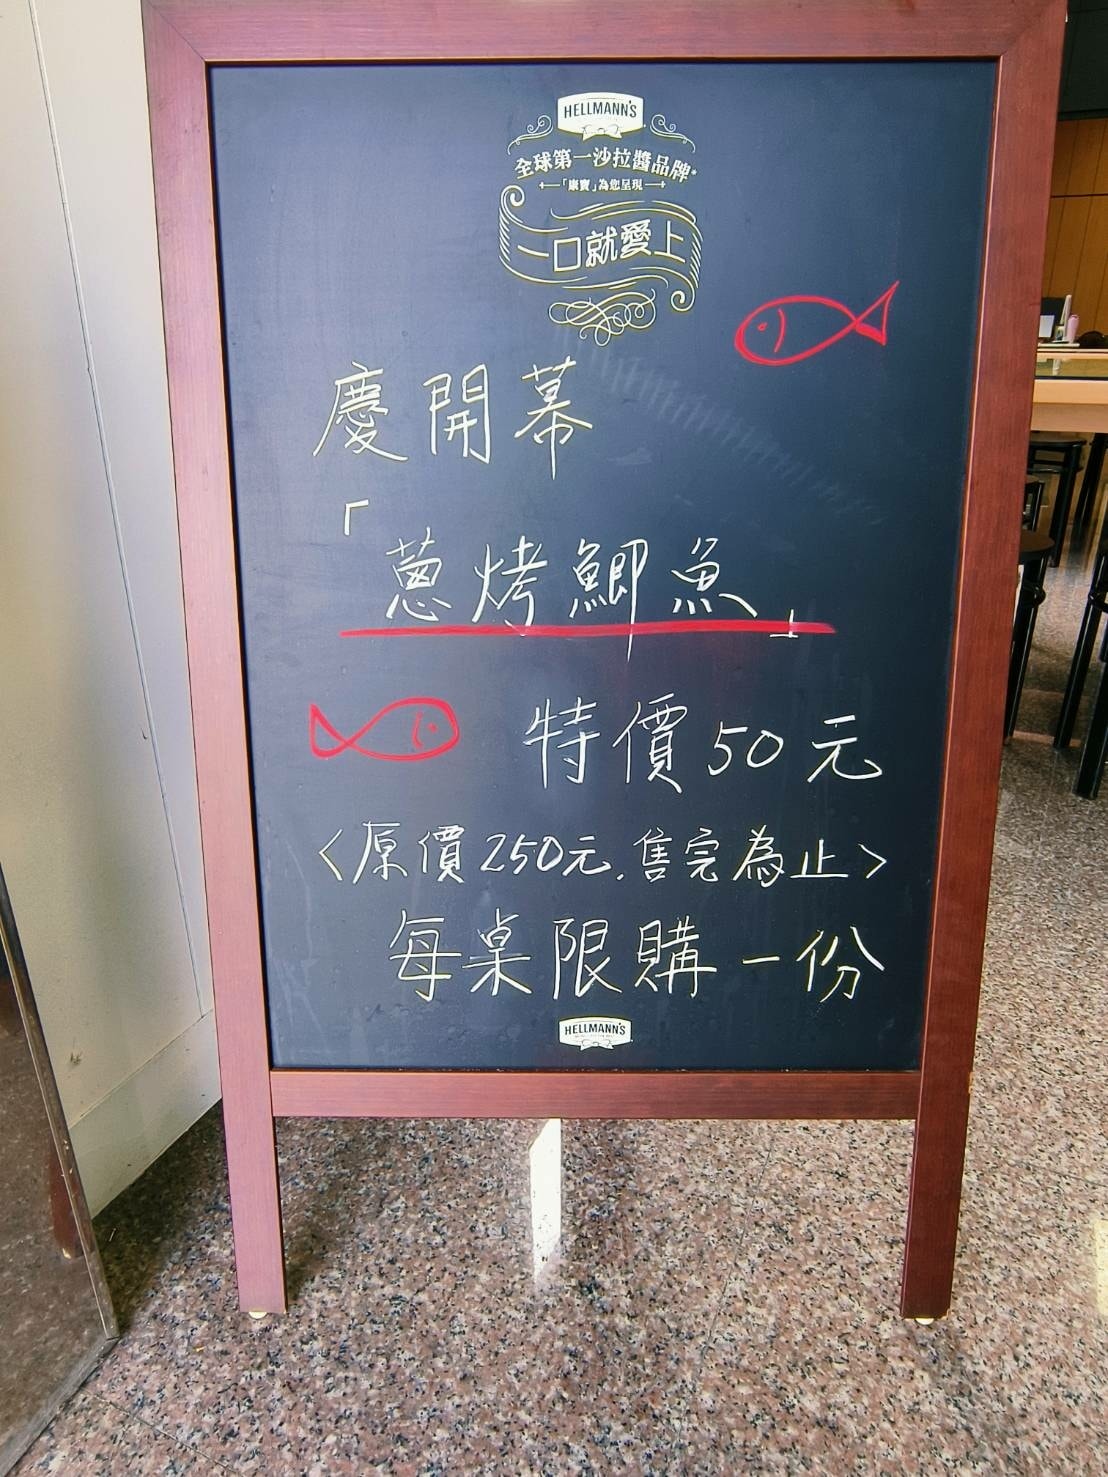 HELLMANN'S
全球第一沙拉醬品牌*
「康寶」為您呈現
一口就愛上
慶開幕
「蔥烤鯽魚」
特價50元
<原價250元.售完為止>
每桌限購一份
HELLMANN'S